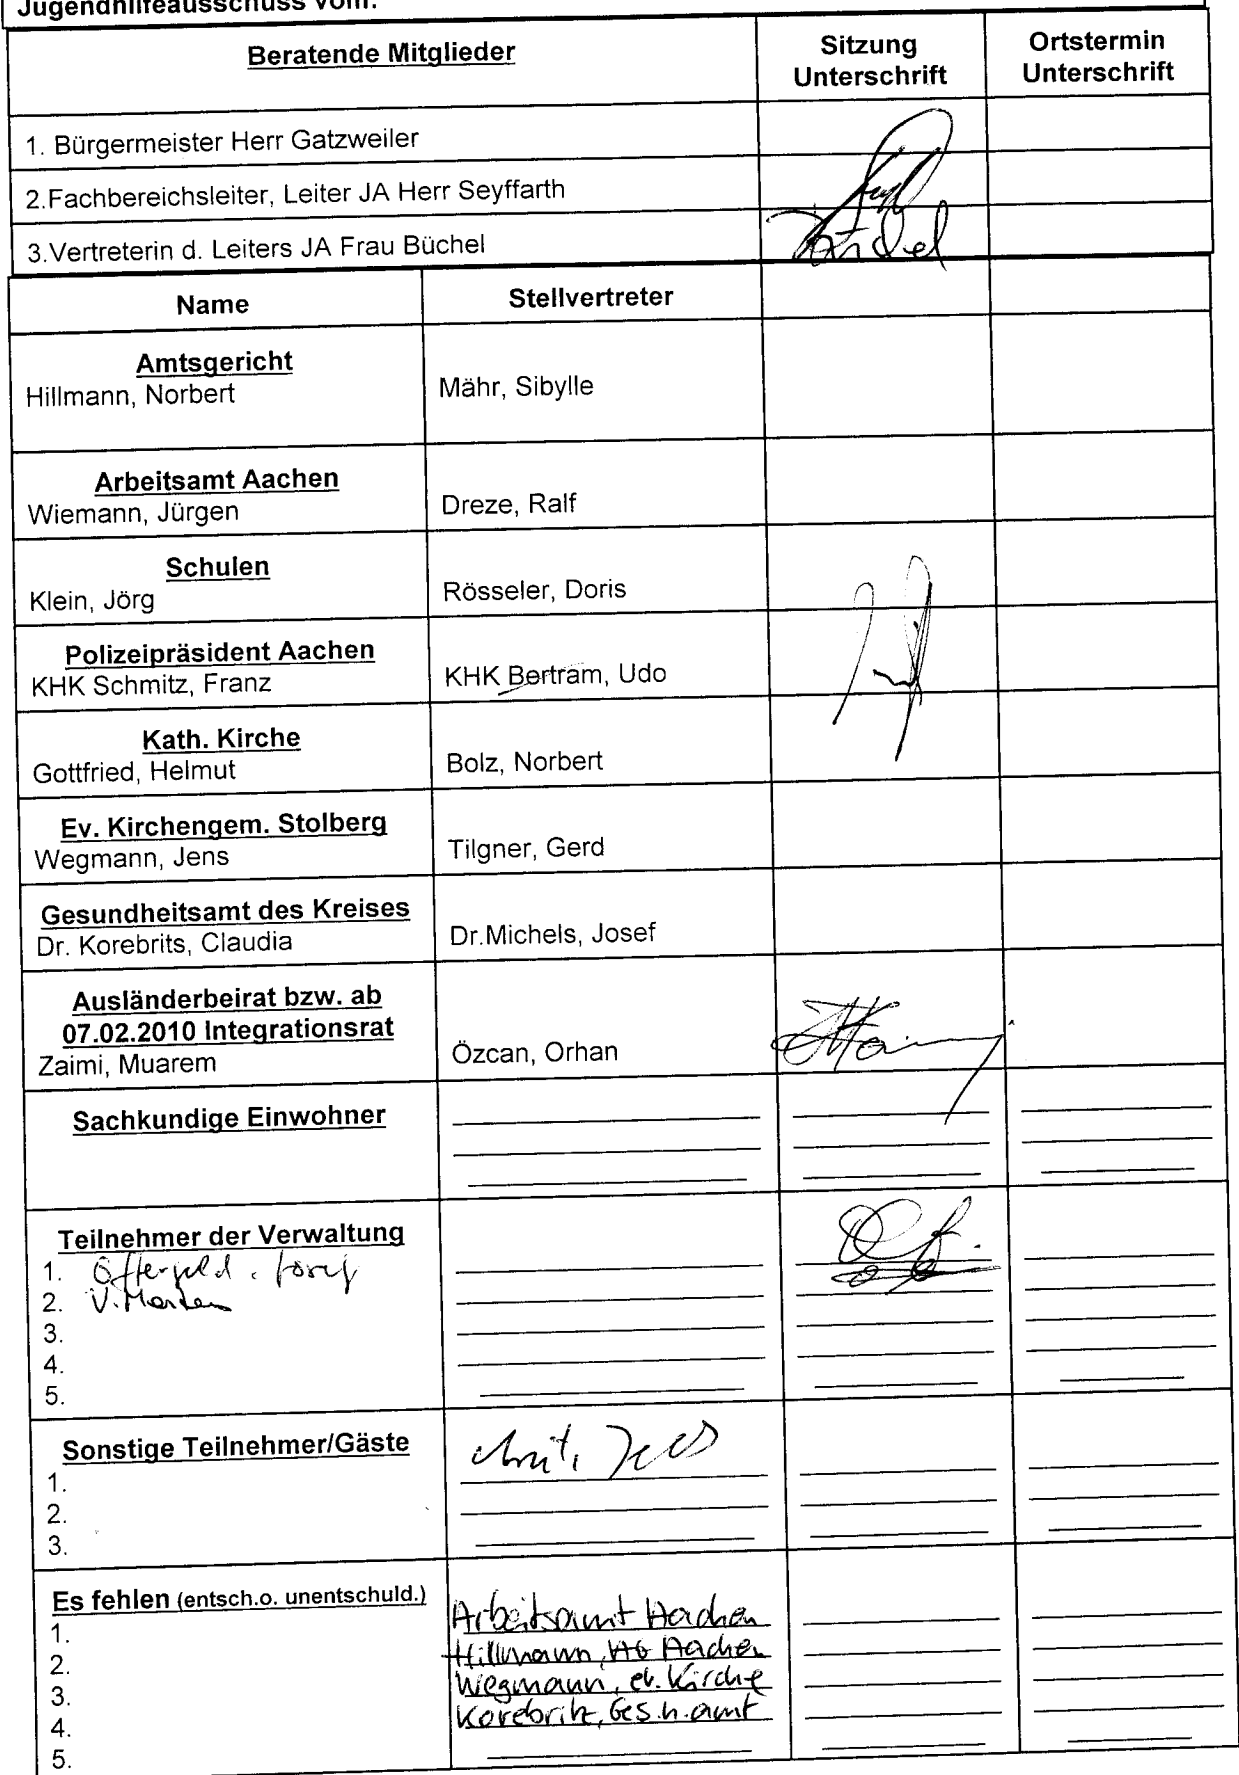 Jugendhilfeausschuss vom:
Beratende Mitglieder
Sitzung
Unterschrift
Ortstermin
Unterschrift
1. Bürgermeister Herr Gatzweiler
2.Fachbereichsleiter, Leiter JA Herr Seyffarth
3.Vertreterin d. Leiters JA Frau Büchel
Name
Stellvertreter
Amtsgericht
Hillmann, Norbert
Mähr, Sibylle
Arbeitsamt Aachen
Wiemann, Jürgen
Dreze, Ralf
Schulen
Klein, Jörg
Rösseler, Doris
Polizeipräsident Aachen
KHK Schmitz, Franz
KHK Bertram, Udo
Kath. Kirche
Gottfried, Helmut
Bolz, Norbert
Ev. Kirchengem. Stolberg
Wegmann, Jens
Tilgner, Gerd
Gesundheitsamt des Kreises
Dr. Korebrits, Claudia
Dr.Michels, Josef
Ausländerbeirat bzw. ab
07.02.2010 Integrationsrat
Zaimi, Muarem
Özcan, Orhan
Sachkundige Einwohner
Teilnehmer der Verwaltung
1. Offergeld, Josef
2.
3.
4.
5.
Sonstige Teilnehmer/Gäste
1.
2.
3.
Es fehlen (entsch.o. unentschuld.)
1. Arbeitsamt Aachen
2. Hillmann, AG Aachen
3. Wegmann, ev. Kirche
4. Korebritz, Ges.h.amt
5.